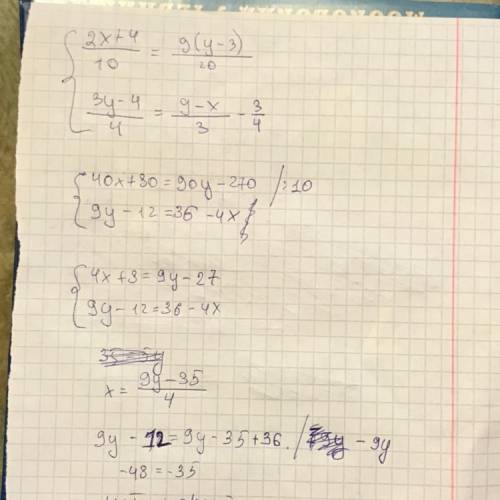 2x+4/10 = 9(y-3)/20
3y-4/4 = 9-x/3 - 3/4
40x+80=90y-270 /:10
9y-12=36-4x
4x+8=9y-27
9y-12=36-4x
x= 9y-35/4
9y-12=9y-35+36. / -9y
-48=-35